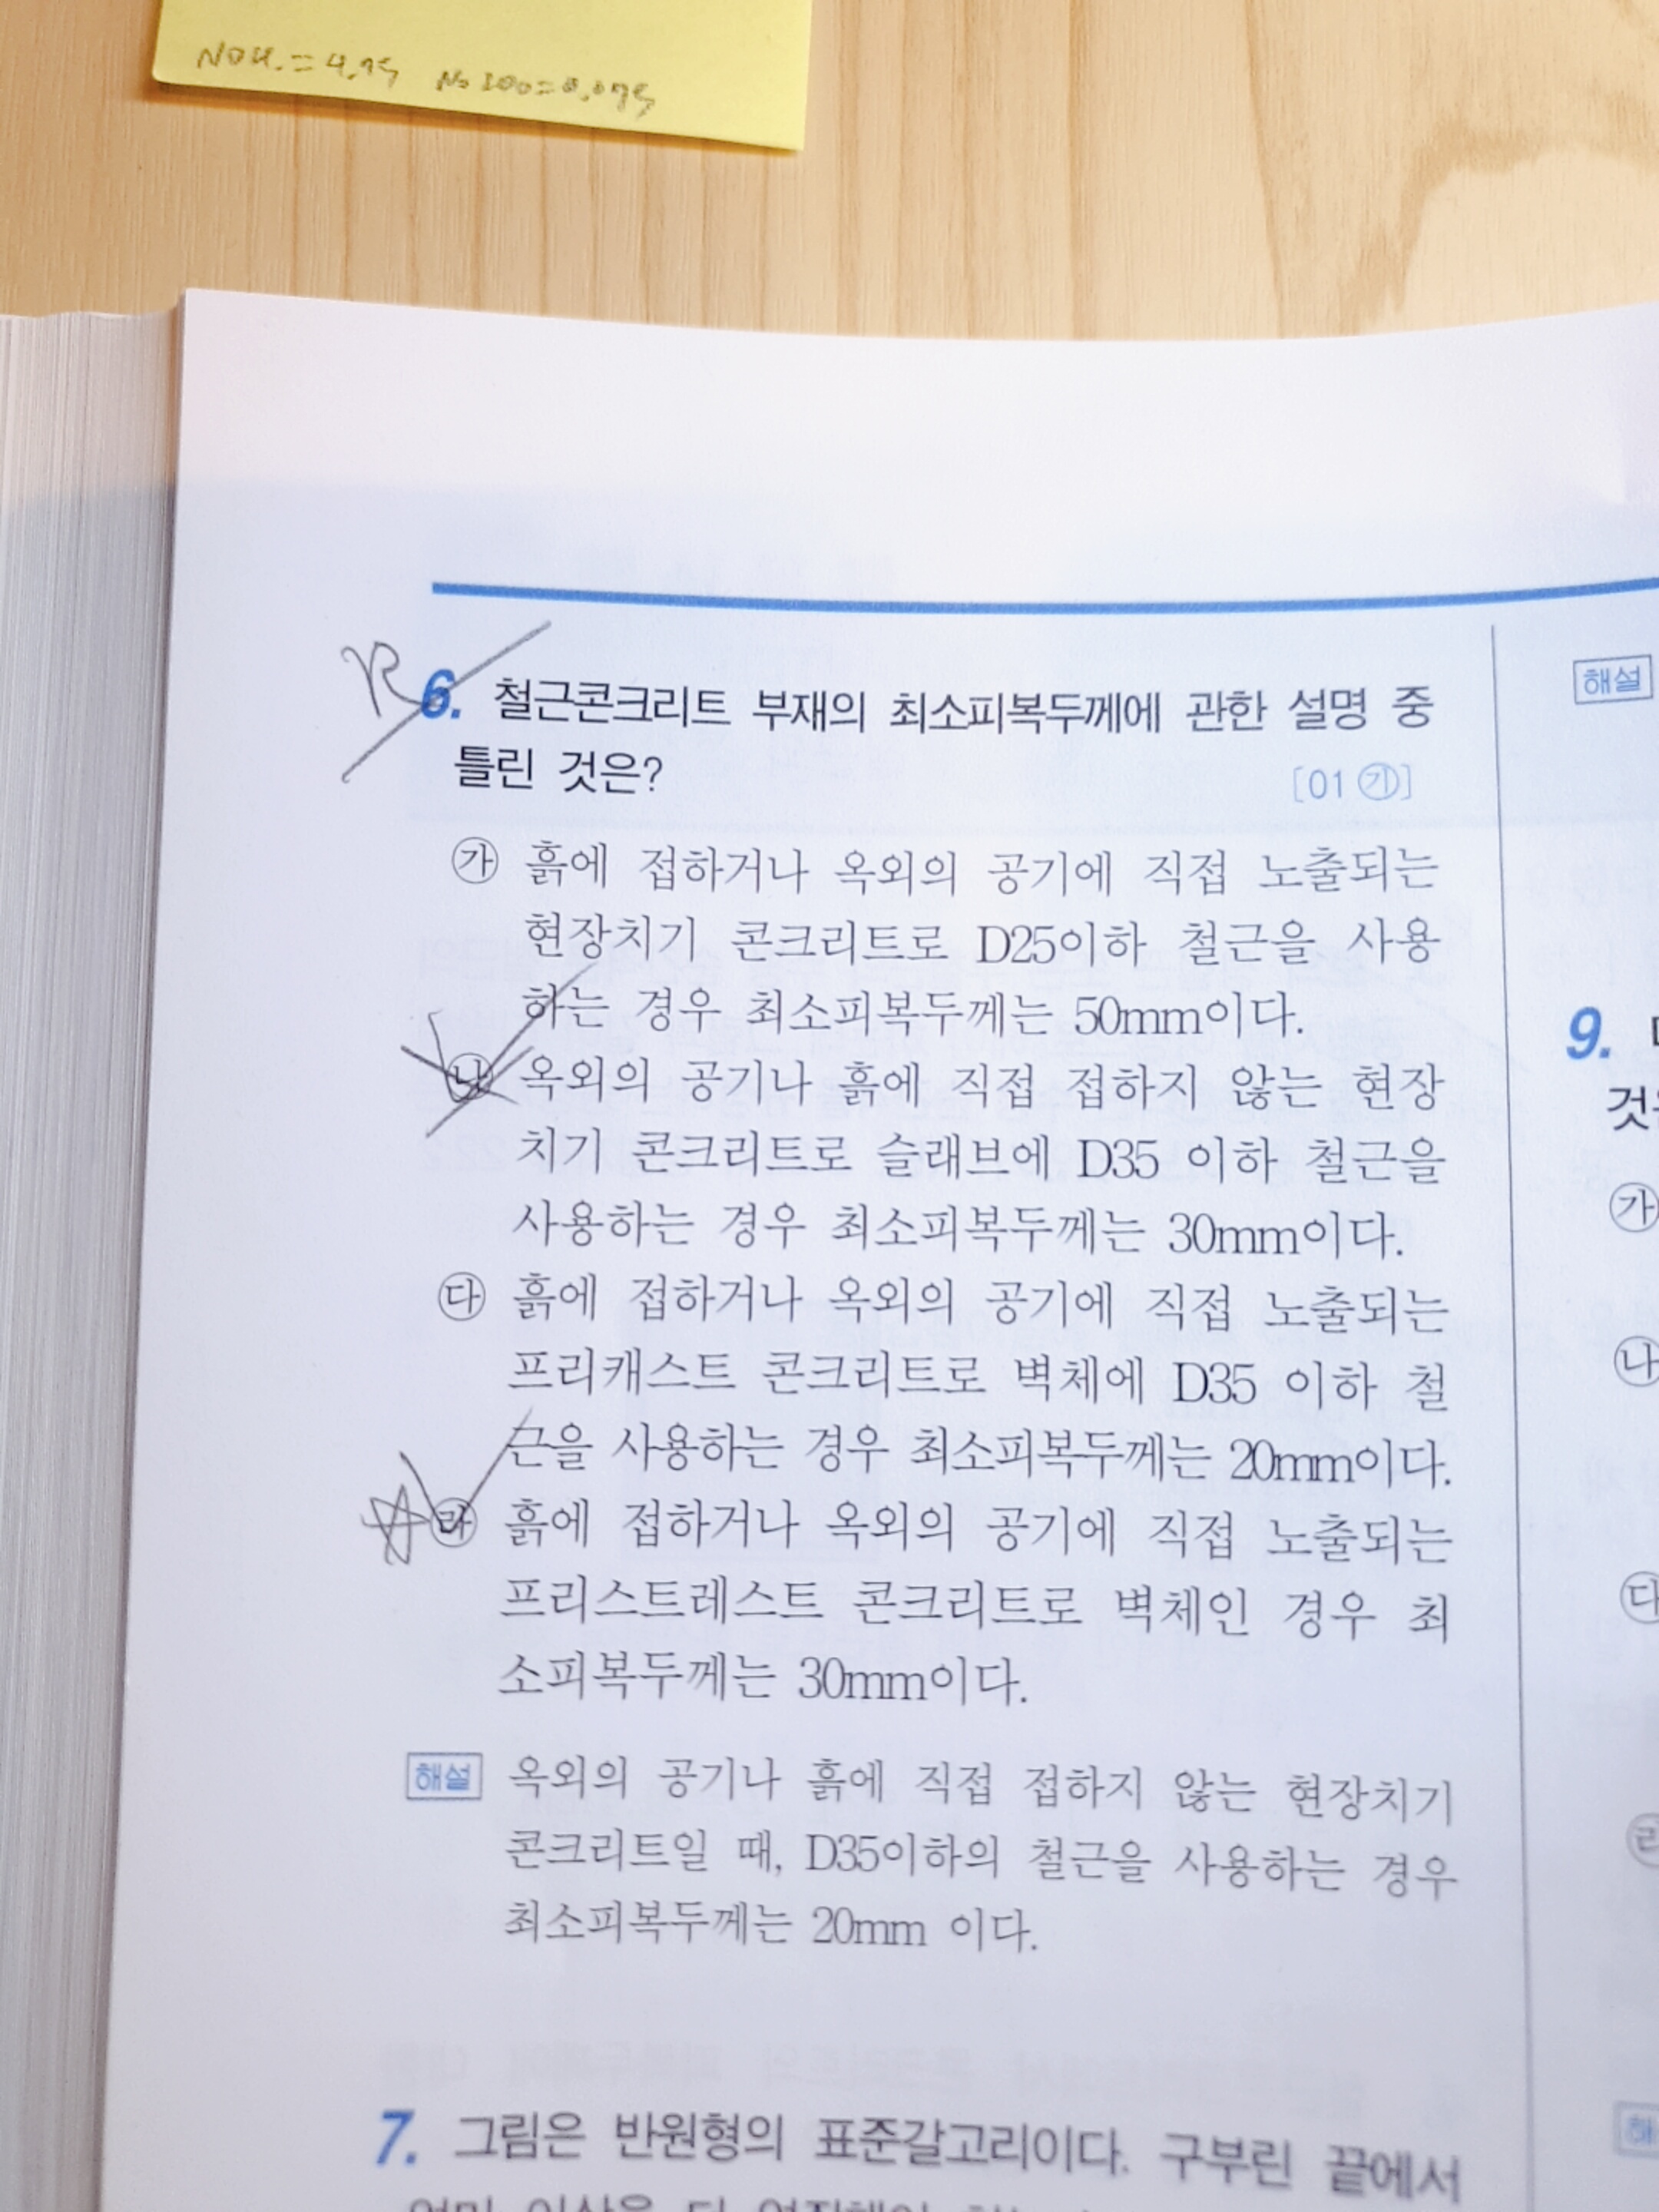 No4. = 4.75 No 200 = 0.075
6. 철근콘크리트 부재의 최소피복두께에 관한 설명 중
틀린 것은? [01 ㉮]
㉮ 흙에 접하거나 옥외의 공기에 직접 노출되는
현장치기 콘크리트로 D25이하 철근을 사용
하는 경우 최소피복두께는 50mm이다.
㉯ 옥외의 공기나 흙에 직접 접하지 않는 현장
치기 콘크리트로 슬래브에 D35 이하 철근을
사용하는 경우 최소피복두께는 30mm이다.
㉰ 흙에 접하거나 옥외의 공기에 직접 노출되는
프리캐스트 콘크리트로 벽체에 D35 이하 철
근을 사용하는 경우 최소피복두께는 20mm이다.
㉱ 흙에 접하거나 옥외의 공기에 직접 노출되는
프리스트레스트 콘크리트로 벽체인 경우 최
소피복두께는 30mm이다.
해설 옥외의 공기나 흙에 직접 접하지 않는 현장치기
콘크리트일 때, D35이하의 철근을 사용하는 경우
최소피복두께는 20mm 이다.
7. 그림은 반원형의 표준갈고리이다. 구부린 끝에서
해설
9.
㉮
㉯
㉰